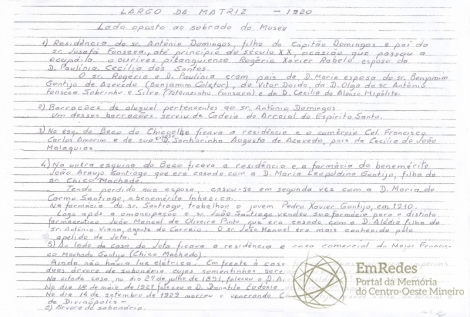 LARGO DA MATRIZ — 1920
Lado oposto ao sobrado do Museu
1) Residência do sr. Antônio Domingos, filho do Capitão Domingos e pai do
sr. Josafá Fonseca, até princípio do século XX, ocasião que passou a
ocupá-la o ourives pitanguiense Rogério Xavier Rabelo esposo de
D. Paulina Cecília dos Santos.
O sr. Rogério e D. Paulina eram pais de D. Maria esposa do sr. Benjamim
Gontijo de Azevedo (Benjamim Coletor), de Vitor Davido, de D. Olga do sr. Antônio
Fonseca Sobrinho e Silva (Totonzinho Fonseca) e de D. Cecília de Aloiso Hipólito.
2) Barracões de aluguel pertencentes ao sr. Antônio Domingos
Um desses barracões serviu de Cadeia do Arraial do Espírito Santo.
3) Na esq. do Beco do ficava a residência e o comércio Cel. Francisco
Carlos Amorim e de sua D. Sanhazinha Augusta de Azevedo, pais de Cecília do João
Malaquias
4) Na outra esquina do Beco ficava a residência e a farmácia do benemérito
João Araujo Santiago que era casado com a D. Maria Leopoldina Gontijo, filha do
sr. Chico Machado.
Tendo perdido sua esposa, casou-se em segunda vez com a D. Maria do
Carmo Santiago, benemérita
Na farmácia do Sr. Santiago trabalhou o jovem Pedro Xavier Gontijo, em 1910.
Logo após a emancipação o sr. João Santiago vendeu sua farmácia para o distinto
farmacêutico João Manoel de Oliveira Pinto, que era casado com a D. Aldória filha do
sr. Antônio Viana, agente do Correio. O sr. João Manoel era mais conhecido pelo
apelido de Jota.
5) Ao lado da casa do Jota ficava a residência e casa comercial do Major Francisco
Machado Gontijo (Chico Machado).
Ainda não havia luz elétrica. Em frente à casa
duas árvore de saboneiro cujas sementinhas
Na citada casa, no dia 29 de julho de 1931, faleceu a D.
No dia 18 de maio de 1961 faleceu a D. Eudóxia
No dia 16 de setembro de 1979 morreu o venerando
de Divinópolis —
Árvore de saboneiro.
EmRedes
Portal da Memória
do Centro-Oeste Mineiro